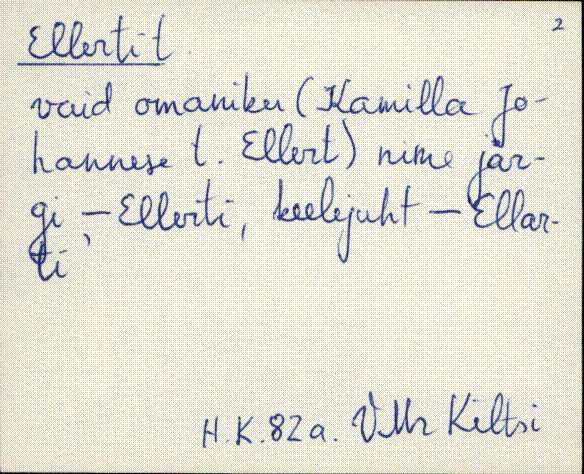 2
Ellerti t
vaid omaniku (Kamilla Jo-
hannese t. Ellert) nime jär-
gi – Ellerti, keelejuht – Ellar-
ti
H.K.82a. VMr Kiltsi